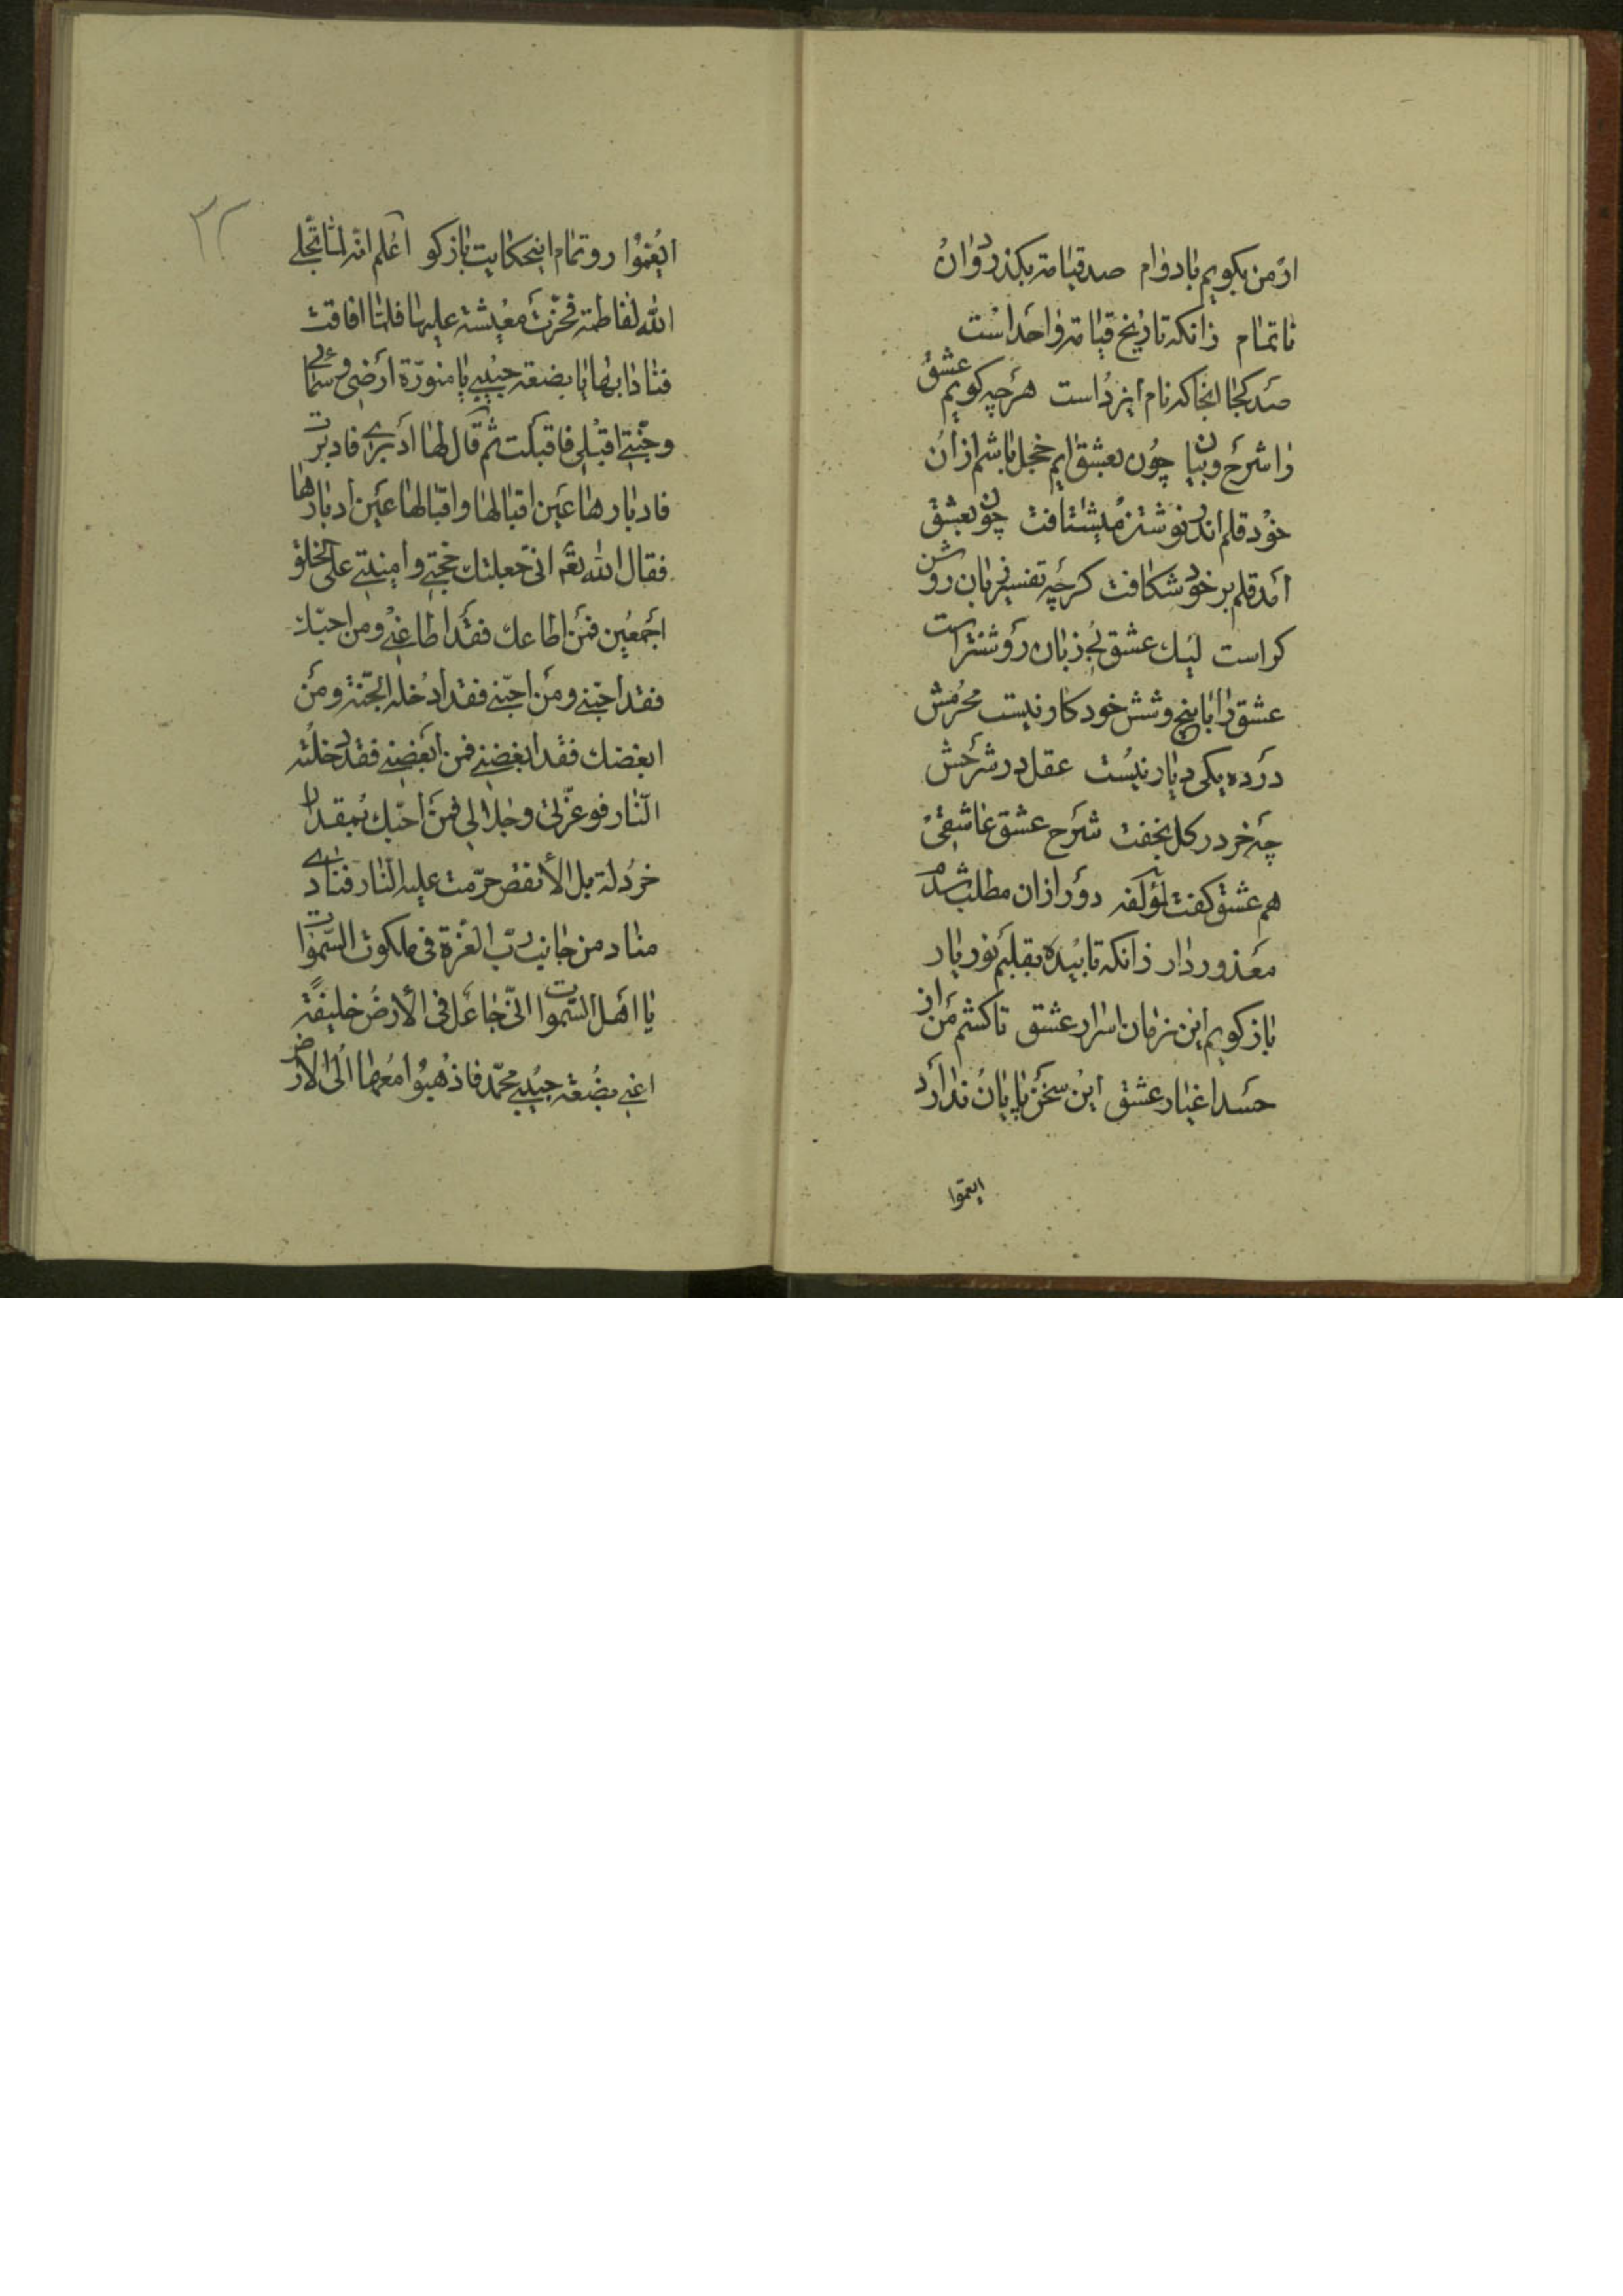 ار من بكويم بادوام صد قيامة بكذرد وان
ناتمام زانكه تاريخ قيامة واحد است
صد كجا انجا كه نام ايزد است هرچه كويم عشق
را شرح و بيان چون بعشق ايم خجل باشم ازان
خود قلم اندر نوشتن ميشتافت چون بعشق
آمد قلم بر خود شكافت كرچه تفسير زبان روشن
كر است ليك عشق بى زبان روشنتر است
عشق را با پنج و شش خود كار نيست محرمش
در ده يكى ديار نيست عقل در شرحش
چه خر در كل بخفت شرح عشق عاشقى
هم عشق كفت لمؤلفه دور ازان مطلب شدم
معذور دار زانكه تابيده بقلبم نور يار
باز كويم اين زمان اسرار عشق تا كشم من از
حسد اغيار عشق اين سخن پايان ندارد
ايعموا
٣٢
ايعموا رو تمام اينحكايت باز كو اعلم انه لما تجلى
الله لفاطمة فخرت مغيشة عليها فلما افاقت
فنادا بها يا بضعة حبيبى يا منورة ارضى و سمائى
و جنتى اقبلى فاقبلت ثم قال لها ادبرى فادبرت
فادبارها عين اقبالها و اقبالها عين ادبارها
فقال الله تعه انى جعلتك حجتى و امينتى على الخلق
اجمعين فمن اطاعك فقد اطاعنى و من احبك
فقد احبنى و من احبنى فقد ادخله الجنة و من
ابغضك فقد ابغضنى فمن ابغضنى فقد ادخلته
النار فو عزتى و جلالى فمن احبك بمقدار
خردلة بل الأنقص حرمت عليه النار فنادى
مناد من جانب رب العزة فى ملكوت السموات
يا اهل السموات انى جاعل فى الأرض خليفة
اعنى بضعة حبيبى محمد فاذهبوا معها الى الارض